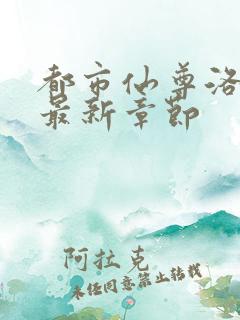 都市仙尊洛
最新章節
阿拉克
未经同意禁止转载